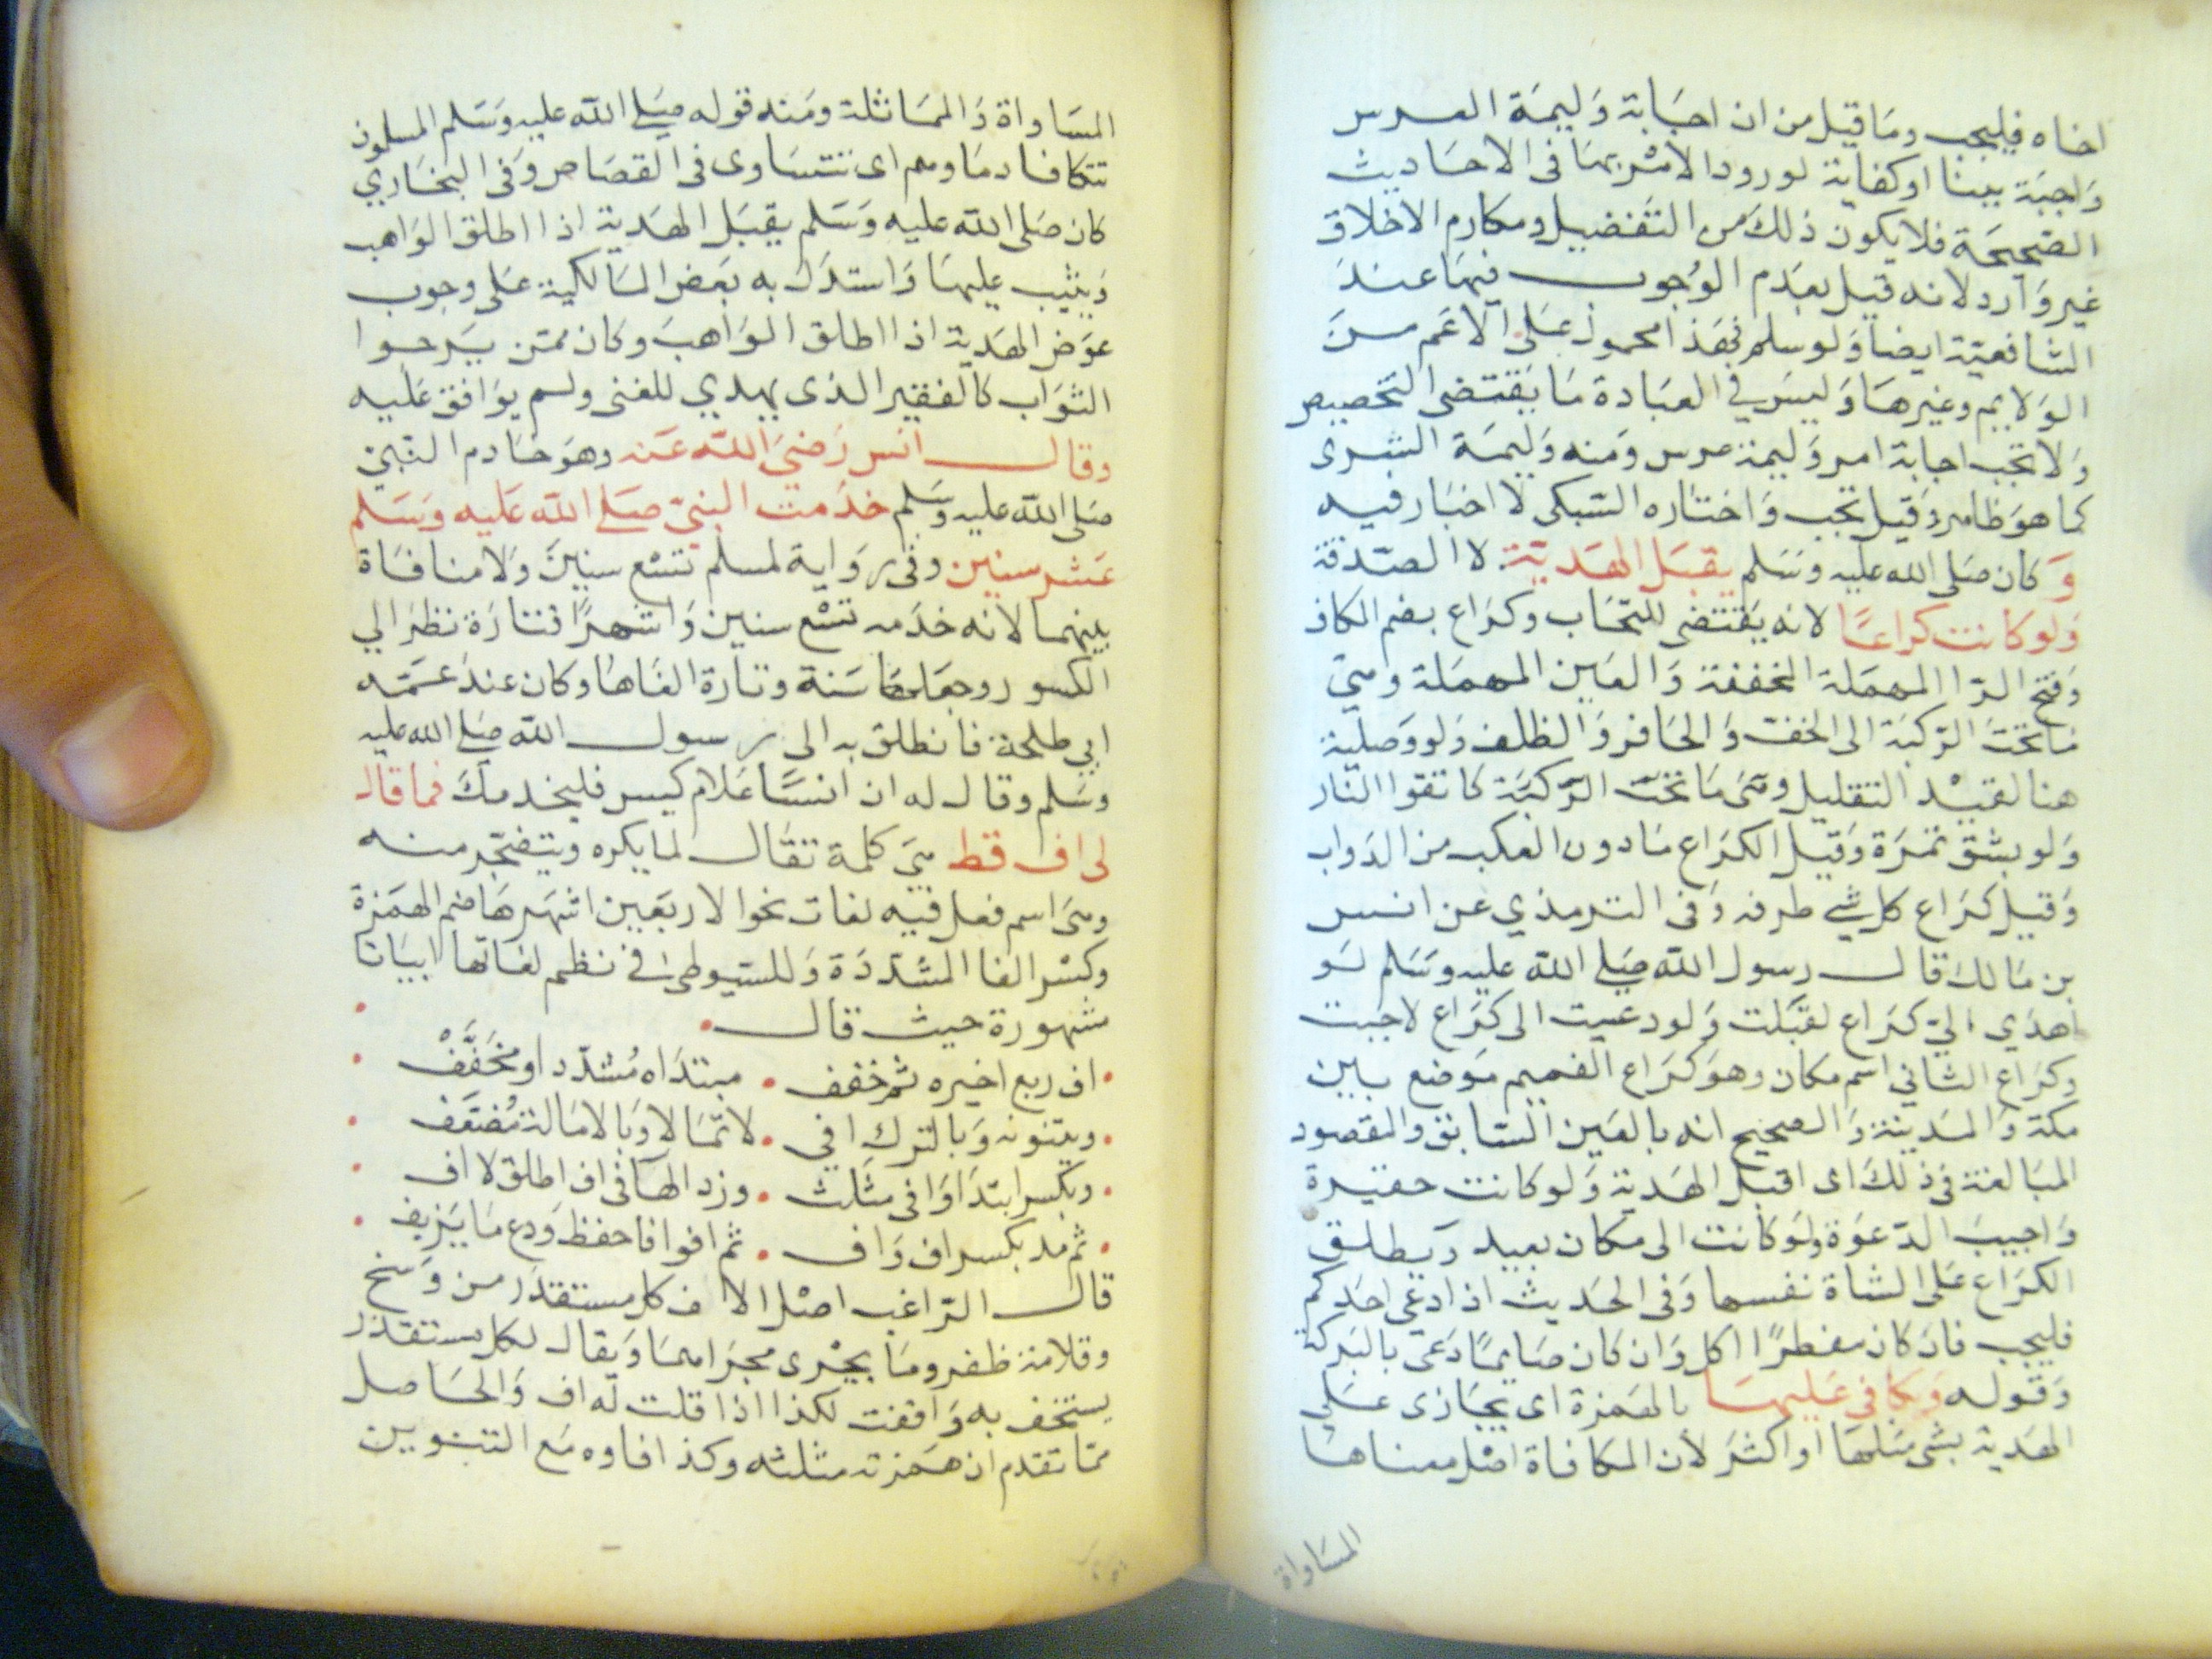 اخاه فليجب وما قيل من ان اجابة وَليمَة العرس
وَاجبَة عينا او كفاية لورود الامْر بهَا فى الاحَاديث
الصَّحيحَة فلا يكون ذلكَ من التفضيل ومكارم الاخلاق
غير وَارد لانه قيل بعَدم الوُجوب فيهَا عندَ
الشافعيَّة ايضا وَلو سلم فهَذا محمول عَلى الاعَم منَ
الوَلايم وغيرهَا وَليسَ في العبَادة مَا يَقتضى التخصيص
وَلا تجب اجابة امر وَليمة عرس وَمنه وَليمَة الشرى
كما هوَ ظاهر وَقيل تجب وَاختاره السّبكى لا اخبَار فيه
وَ كان صَلى الله عليه وسَلم يقبَل الهَديَّة لا الصّدقة
وَلو كانت كراعًا لانه يَقتضى للتحَاب وكرَاع بضم الكاف
وَفتح الرّا المهمَلة المخففة وَالعَين المهمَلة وهيَ
مَا تحتَ الرّكبَة الى الخف وَالحَافر وَالظلف وَلو وَصليَّة
هنا لقيْد التقليل وهى مَا تحتَ الرّكبَة كاتقوا النَّار
وَلو بشق تمَرَة وَقيل الكرَاع مَا دون العكب من الدوَاب
وَقيل كرَاع كل شي طرفه وَفى الترمذي عن انس
بن مَالك قال رسول الله صَلى الله عليه وسَلم لَو
اهدَي اليّ كرَاع لقبَلت وَلو دعيت الى كرَاع لاجَبت
وكرَاع الثانى اسْم مكان وهوَ كرَاع الغميم مَوضع بين
مكة وَالمدينة وَالصحيح انه بالعَين السَّابق والمقصود
المبَالغة فى ذلكَ اى اقبل الهَدية وَلو كانت حقيرة
وَاجيبَ الدّعوَة ولَو كانت الى مكان بعيد وَيطلق
الكرَاع عَلى الشاة نفسها وَفى الحَديث اذا دعى احَدكم
فليجب فان كان مفطرًا اكل وَان كان صَايمًا دَعَى بالبَركة
وَقوله وَيكافى عَليهَا بالهَمزة اى يجَازى عَلى
الهَدية بشى مثلهَا او اكثَر لأن المكافاة اصْل معناهَا
المسَاواة
المسَاواة وَالممَاثلة وَمنه قوله صَلى الله عليه وَسَلم المسلمون
تتكافا دمَاوهم اى تتسَاوى فى القصَاص وَفى البخَاري
كان صَلى الله عليه وَسَلم يقبَل الهَدية اذا اطلق الوَاهب
وَيثيب عليهَا وَاستدَل به بَعض المَالكية عَلى وجوب
عوَض الهَدية اذا اطلق الوَاهبَ وكان ممّن يَرجوا
الثوَاب كالفقير الذى يهدي للغنى ولم يوَافق عَليه
وقال انس رَضيَ الله عَنه وهوَ خَادم النبي
صَلى الله عليه وسَلم خدَمت النبيّ صَلى الله عَليه وَسَلم
عَشر سنين وفى روَاية لمسلم تسْع سنينَ وَلا منافَاة
بينهما لانه خدَمه تسْع سنين وَاشهرًا فتارَة نظرَ الي
الكسور وجعَلهَا سَنة وتارة الغَاهَا وكان عندَ عمَّه
ابي طلحة فانطلق به الى رسول الله صَلى الله عليه
وسَلم وقال له ان انسًا غلام كيس فليخدمكَ فما قال
لى اف قط هيَ كلمة تقال لما يكره ويتضجّر منه
وهىَ اسم فعل فيه لغات نحوا لاربَعين اشهَرهَا ضم الهمَزة
وكسْر الفا المشدّدَة وَللسّيوطىّ فى نظم لغاتها ابيَاتا
مشهورة حيث قال
اف ربع اخيره ثم خفف مبتدَاه مُشدّد او مُخَفَّفْ
وبتنونه وَبالترك افى لا ممَالا وَبالامَالة مُضعَّف
وبكسر ابتدَا وَافى مثَلث وزد الهَا فى اف اطلق لا اف
ثم مد بكسر اف وَاف ثم افوا فاحفظ وَدع مَا يَزيف
قال الرّاغب اصْل الاف كل مستقذَر من وَسَخ
وقلامة ظفر ومَا يجْرى مجرَاهمَا وَيقال لكل مستقذر
يستخف به وَاففت لكذا اذا قلت لَه اف وَالحَاصل
ممّا تقدم ان هَمزته مثلثه وكذا فاوه مَع التنوين